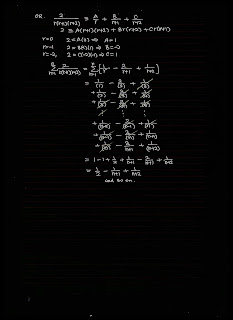 OR. 2/r(r+1)(r+2) ≡ A/r + B/r+1 + C/r+2
2 ≡ A(r+1)(r+2) + Br(r+2) + Cr(r+1)
r=0 2=A(2) ⇒ A=1
r=-1 2=B(-1)(1) ⇒ B=-2
r=-2, 2=C(-2)(-1) ⇒ C=1
n Σ r=1 2/r(r+1)(r+2) = n Σ r=1 [1/r - 2/r+1 + 1/r+2]
= 1/(1) - 2/(2) + 1/(3)
+ 1/(2) - 2/(3) + 1/(4)
+ 1/(3) - 2/(4) + 1/(5)
+ 1/(n-1) - 2/(n) + 1/(n+1)
+ 1/(n) - 2/(n+1) + 1/(n+2)
= 1 - 1 + 1/2 + 1/n+1 - 2/n+1 + 1/n+2
= 1/2 - 1/n+1 + 1/n+2
and so on.